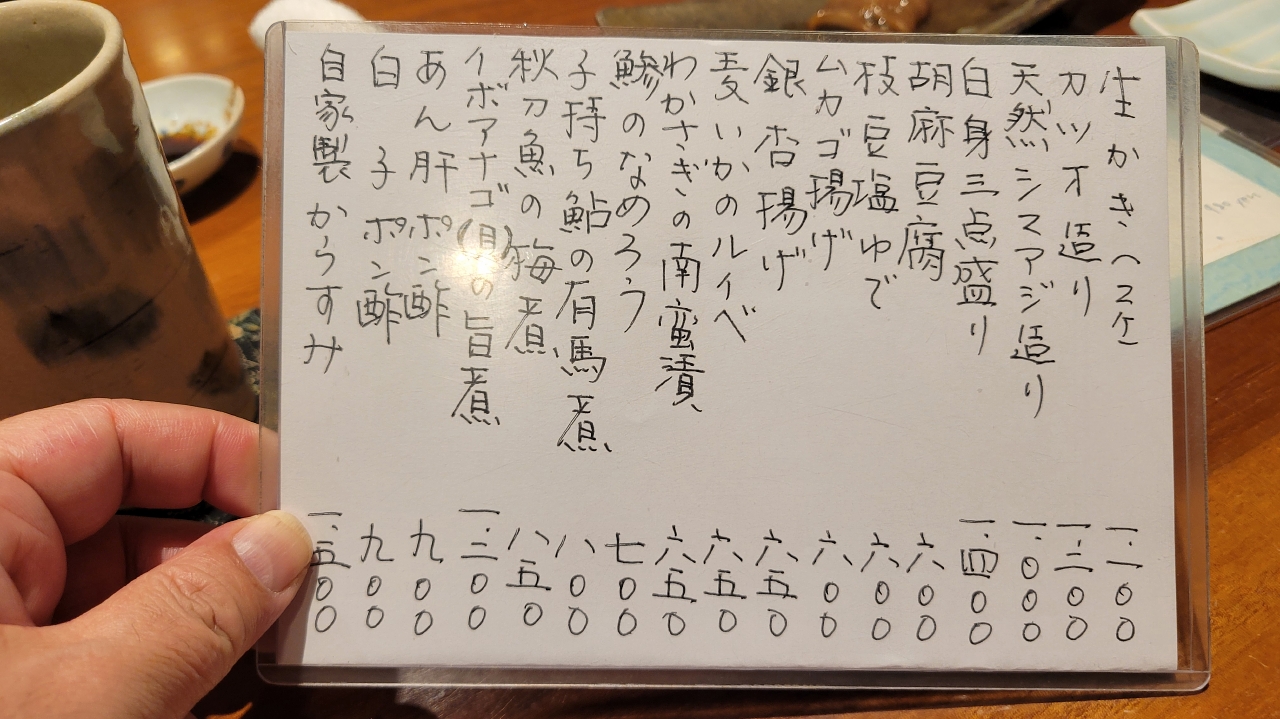 生かき(2ケ) 一、二〇〇
カツオ造り 一、二〇〇
天然シマアジ造り 一、〇〇〇
白身三点盛り 一、四〇〇
胡麻豆腐 六〇〇
枝豆塩ゆで 六〇〇
ムカゴ揚げ 六〇〇
銀杏揚げ 六五〇
麦いかのルイベ 六五〇
わかさぎの南蛮漬 六五〇
鯵のなめろう 七〇〇
子持ち鮎の有馬煮 八〇〇
秋刀魚の梅煮 八五〇
イボアナゴ の旨煮 一、三〇〇
あん肝ポン酢 九〇〇
白子ポン酢 九〇〇
自家製からすみ 一、五〇〇